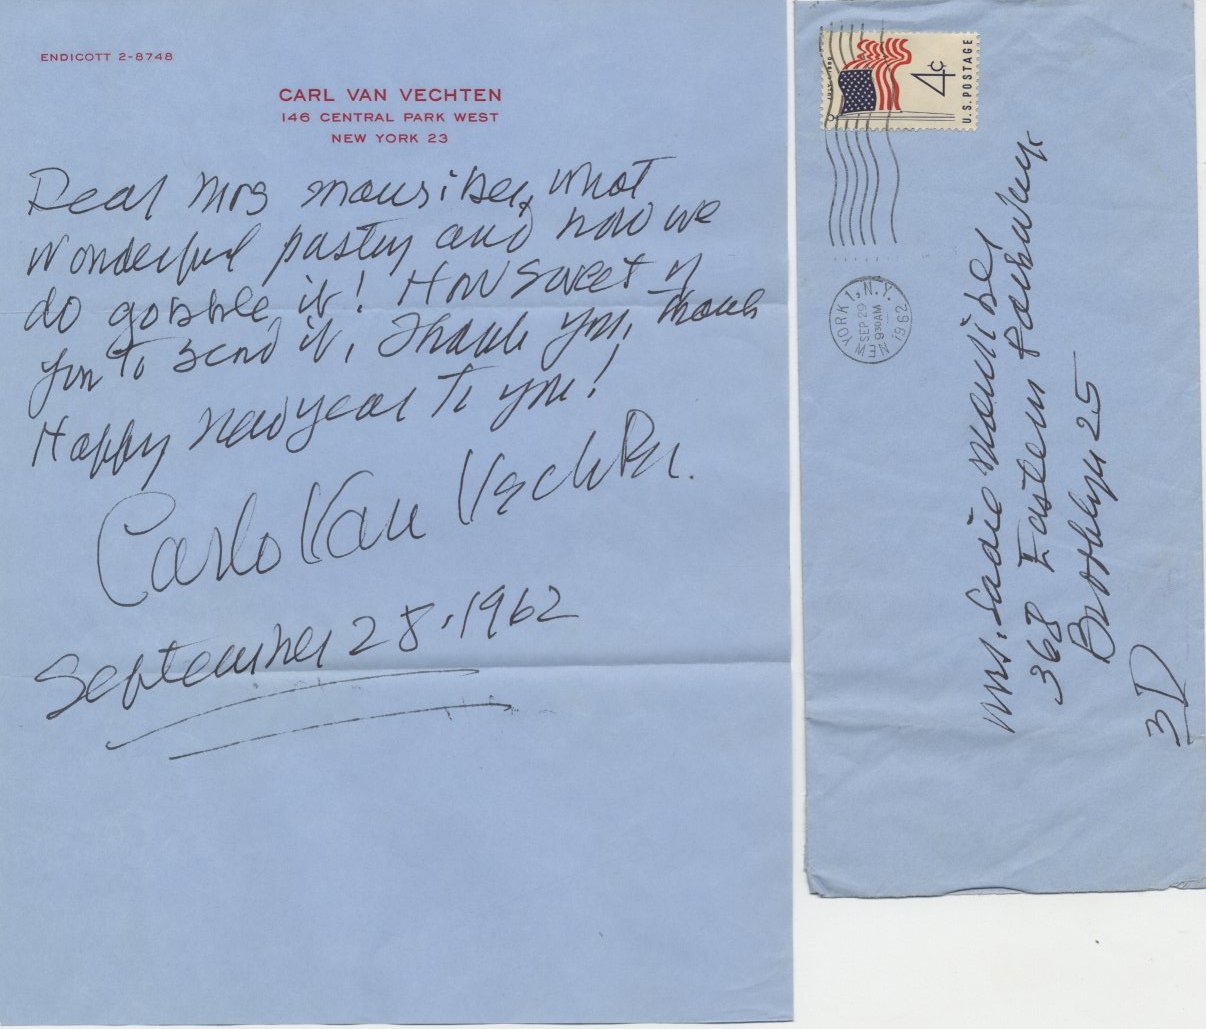 ENDICOTT 2-8748
CARL VAN VECHTEN
146 CENTRAL PARK WEST
NEW YORK 23
Dear Mrs what
wonderful pastry and how we
do gobble it! How sweet of
you to send it, Thank you, thank
Happy New year to you!
Carlo Van Vechten.
September 28, 1962
4¢
U.S. POSTAGE
NEW YORK 1, N.Y.
SEP 29
9 30 AM
1962
Mrs. Sadie
368 Eastern Parkway
Brooklyn 25
3D